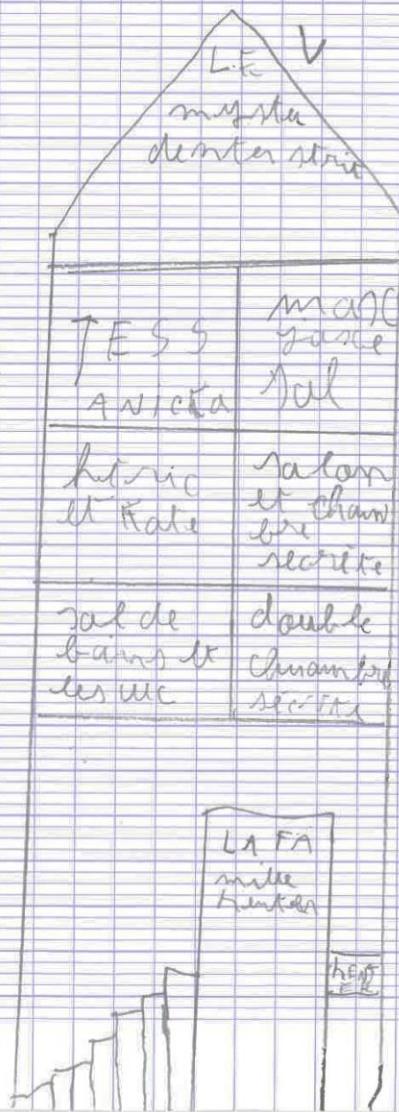 L.E V
myster
denter strit
TESS
ANICKA
masc
jasce
sal
héric
et Kate
salon
et cham
bre
secrète
sal de
bains et
les wc
double
chambre
LA FA
mille
henter
HENT
ER